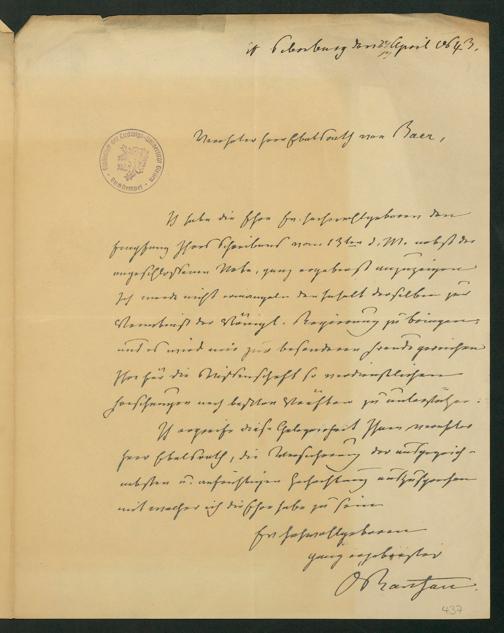 St Petersburg den 22 April 1843.
Verehrter Herr Etatsrath von Baer,
Ich habe die Ehre Ew. Hochwohlgeboren den
Empfang Ihres Schreibens vom 13ten d. M. nebst der
angeschlossenen Note, ganz ergebenst anzuzeigen.
Ich werde nicht ermangeln den Inhalt derselben zur
Kenntniß der Königl. Regierung zu bringen,
und es wird mir zur besonderen Freude gereichen
Ihre für die Wissenschaft so verdienstlichen
Forschungen nach besten Kräften zu unterstützen.
Ich ergreife diese Gelegenheit Ihnen, verehrter
Herr Etatsrath, die Versicherung der ausgezeich-
netsten u. aufrichtigen Hochachtung auszusprechen
mit welcher ich die Ehre habe zu sein
Ew. Hochwohlgeboren
ganz ergebenster
437